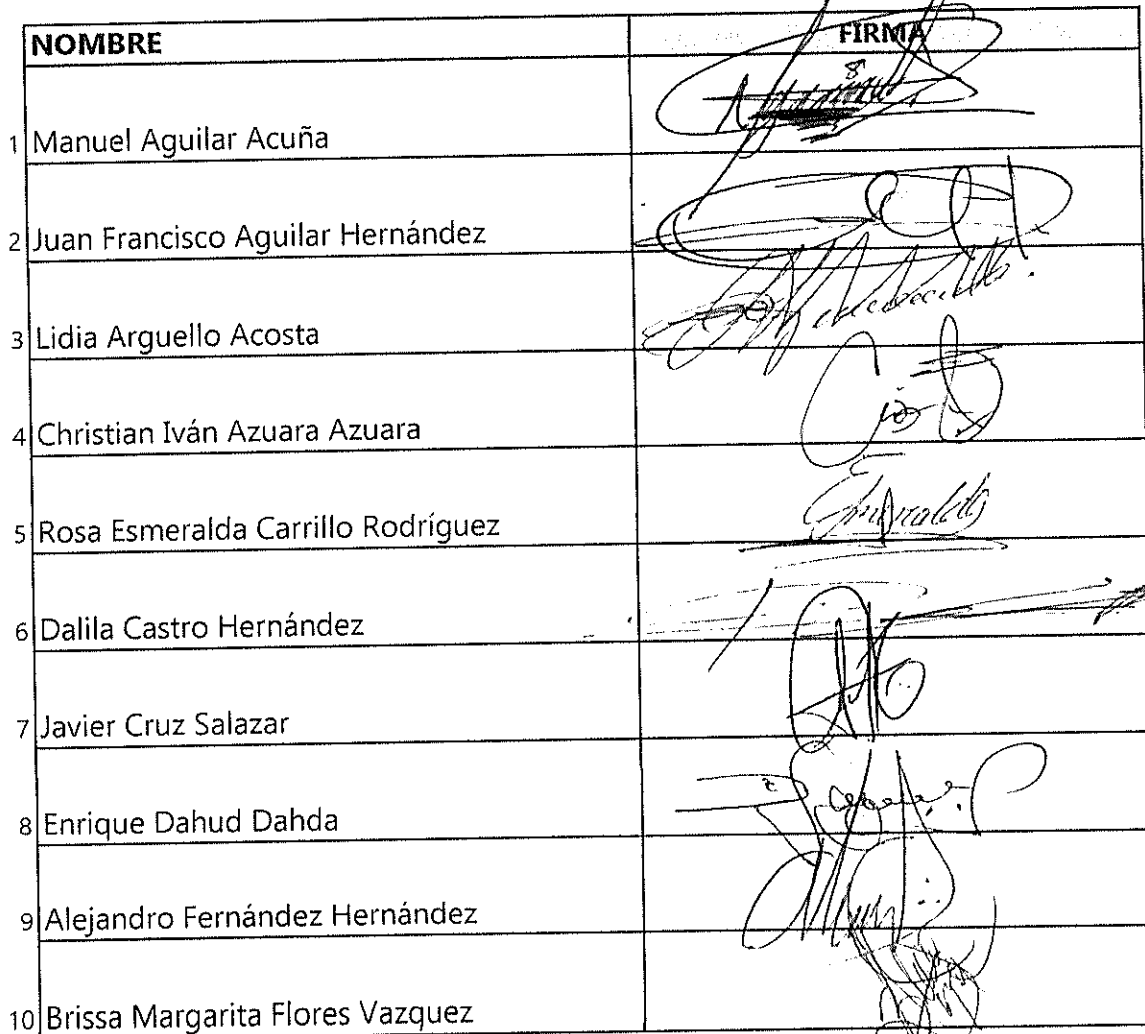 NOMBRE FIRMA
1 Manuel Aguilar Acuña
2 Juan Francisco Aguilar Hernández
3 Lidia Arguello Acosta
4 Christian Iván Azuara Azuara
5 Rosa Esmeralda Carrillo Rodríguez Esmeralda
6 Dalila Castro Hernández
7 Javier Cruz Salazar
8 Enrique Dahud Dahda
9 Alejandro Fernández Hernández
10 Brissa Margarita Flores Vazquez